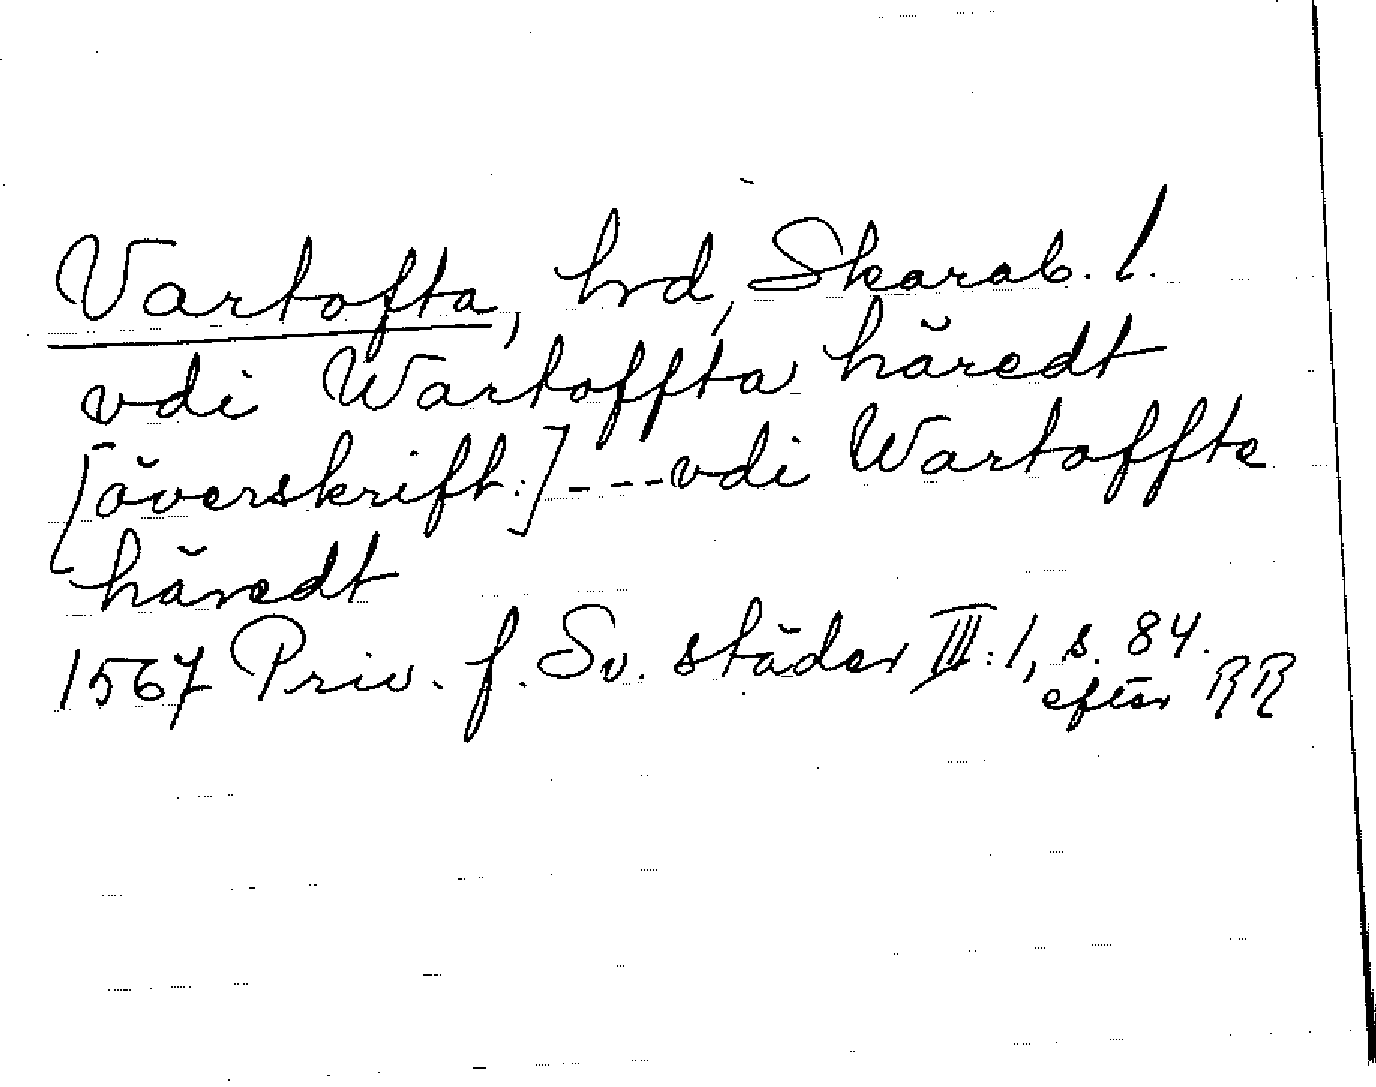 Vartofta, hrd, Skarab. l.
vdi Wartoffta häredt
[överskrift:] --- vdi Wartoffte
häredt
1567 Priv. f. Sv. städer III:1, s. 84.
efter RR